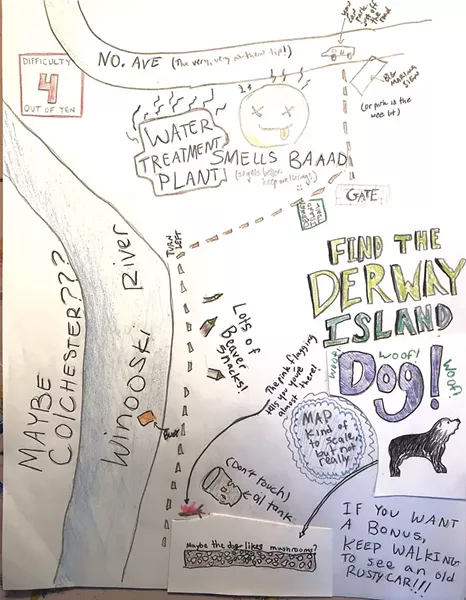 you can park just off the road
DIFFICULTY
4
OUT OF TEN
NO. AVE (The very, very northern tip!)
BIG MARINA SIGN
(or park in the wee lot)
WATER
TREATMENT
PLANT
SMELLS BAAAD
(smells better, keep walking!)
GATE
TURN LEFT
FIND THE
DERWAY
ISLAND
Dog!
woof!
woof!
woof!
MAYBE
COLCHESTER???
Winooski River
Buoy
Lots of
Beaver
snacks!
The pink flagging
tells you you're
almost there!
MAP
kind of
to scale,
but not
really
(Don't touch)
oil tank
Maybe the dog likes mushrooms?
IF YOU WANT
A BONUS,
KEEP WALKING
TO SEE AN OLD
RUSTY CAR!!!